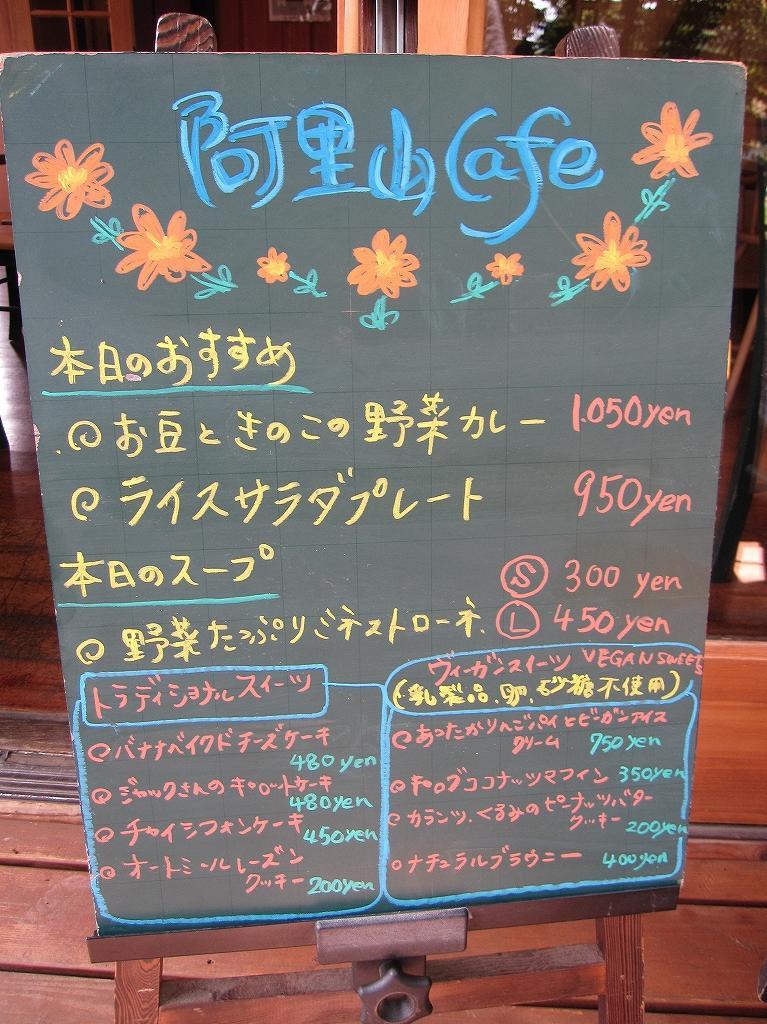 阿里山Cafe
本日のおすすめ
お豆ときのこの野菜カレー 1.050yen
ライスサラダプレート 950yen
本日のスープ
Ⓢ 300 yen
野菜たっぷりミネストローネ Ⓛ 450yen
トラディショナルスイーツ
バナナベイクドチーズケーキ
480yen
ジャックさんのキャロットケーキ
480yen
チャイシフォンケーキ
450yen
オートミールレーズン
クッキー 200yen
ヴィーガンスイーツ VEGAN SWEETS
(乳製品、卵、砂糖不使用)
あったかりんごパイとビーガンアイス
クリーム 750yen
キャロブココナッツマフィン 350yen
カランツ、くるみのピーナッツバター
クッキー 200yen
ナチュラルブラウニー 400yen